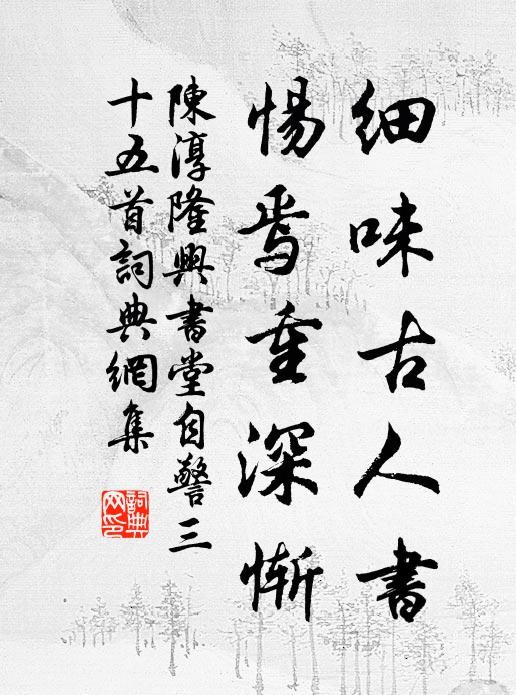 細味古人書
惕焉重深慚
陳淳隆興書堂自警三
十五首詞典網集
詞典網印